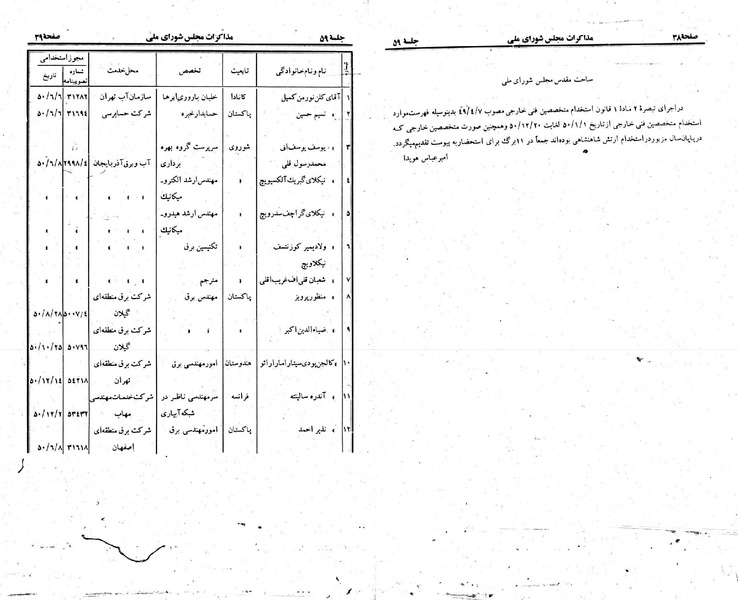 صفحهٔ ۳۸ مذاکرات مجلس شورای ملی جلسهٔ ۵۹
ساحت مقدس مجلس شورای ملی
در اجرای تبصرهٔ ۲ مادهٔ ۱ قانون استخدام متخصصین فنی خارجی مصوب ۴۹/۴/۷ بدینوسیله فهرست موارد
استخدام متخصصین فنی خارجی از تاریخ ۵۰/۶/۱ لغایت ۵۰/۱۲/۲۰ وهمچنین صورت متخصصین خارجی که
در پایان سال مزبور در استخدام ارتش شاهنشاهی بوده‌اند جمعاً در ۱۱ برگ برای استحضار به پیوست تقدیم میگردد.
امیرعباس هویدا
جلسهٔ ۵۹ مذاکرات مجلس شورای ملی صفحهٔ ۳۹
نام و نام خانوادگی تابعیت تخصص محل خدمت مجوز استخدامی
شماره تصویبنامه تاریخ
۱ آقای کلن نورمن کمیل کانادا خلبان باروری ابرها سازمان آب تهران ۳۱۲۸۲ ۵۰/۶/۶
۲ » نسیم حسین پاکستان حسابدار خبره شرکت حسابرسی ۳۱۶۹۴ ۵۰/۶/۶
۳ » یوسف یوسف‌اف شوروی سرپرست گروه بهره
محمدرسول قلی برداری آب و برق آذربایجان ۲۹۹۸/۴ ۵۰/۶/۸
۴ » نیکلای گبریك آلکسیویچ » مهندس ارشد الکترو-
میکانیك » » » » »
۵ » نیکلای گراچف سدرویچ » مهندس ارشد هیدرو-
میکانیك » » » » »
۶ » ولادیمیر کوزنتسف » تکنیسین برق » » » » »
نیکلاویچ
۷ » شعبان قلی‌اف غریب‌اقلی » مترجم » » » » »
۸ » منظور پرویز پاکستان مهندس برق شرکت برق منطقه‌ای
گیلان ۵۰۰۷/۴ ۵۰/۸/۲۸
۹ » ضیاءالدین اکبر » » » شرکت برق منطقه‌ای
گیلان ۵۰۷۹۶ ۵۰/۱۰/۲۵
۱۰ » کالجن پودی سیتارامارائو هندوستان امور مهندسی برق شرکت برق منطقه‌ای
تهران ۵۴۲۱۸ ۵۰/۱۲/۱۴
۱۱ » آندره سالیته فرانسه سرمهندسی ناظر در شرکت خدمات مهندسی
شبکه آبیاری مهاب ۵۳۴۳۲ ۵۰/۱۲/۲
۱۲ » نذیر احمد پاکستان امور مهندسی برق شرکت برق منطقه‌ای
اصفهان ۳۱۶۱۸ ۵۰/۶/۸